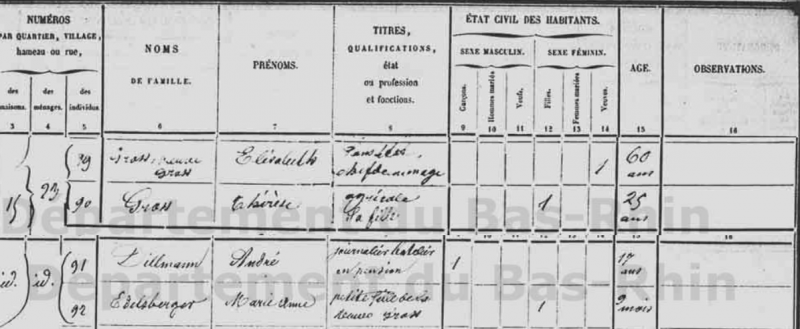 NUMÉROS
PAR QUARTIER, VILLAGE,
hameau ou rue,
des maisons.
des ménages.
des individus
NOMS
DE FAMILLE.
PRÉNOMS.
TITRES,
QUALIFICATIONS,
état
ou profession
et fonctions.
ÉTAT CIVIL DES HABITANTS.
SEXE MASCULIN. SEXE FÉMININ.
Garçons. Hommes mariés Veufs. Filles. Femmes mariées Veuves.
AGE.
OBSERVATIONS.
3 4 5 6 7 8 9 10 11 12 13 14 15 16
89 Gross Elisabeth sans état, 1 60
Gross chef de ménage ans
15 23 90 Gross Thérèse agricole 1 25
Sa fille ans
id. id. 91 Dillmann André journalier 1 17
en pension ans
92 Edelsberger Marie Anne petite fille de la 1 9 mois
veuve Gross
Département du Bas-Rhin
Département du Bas-Rhin